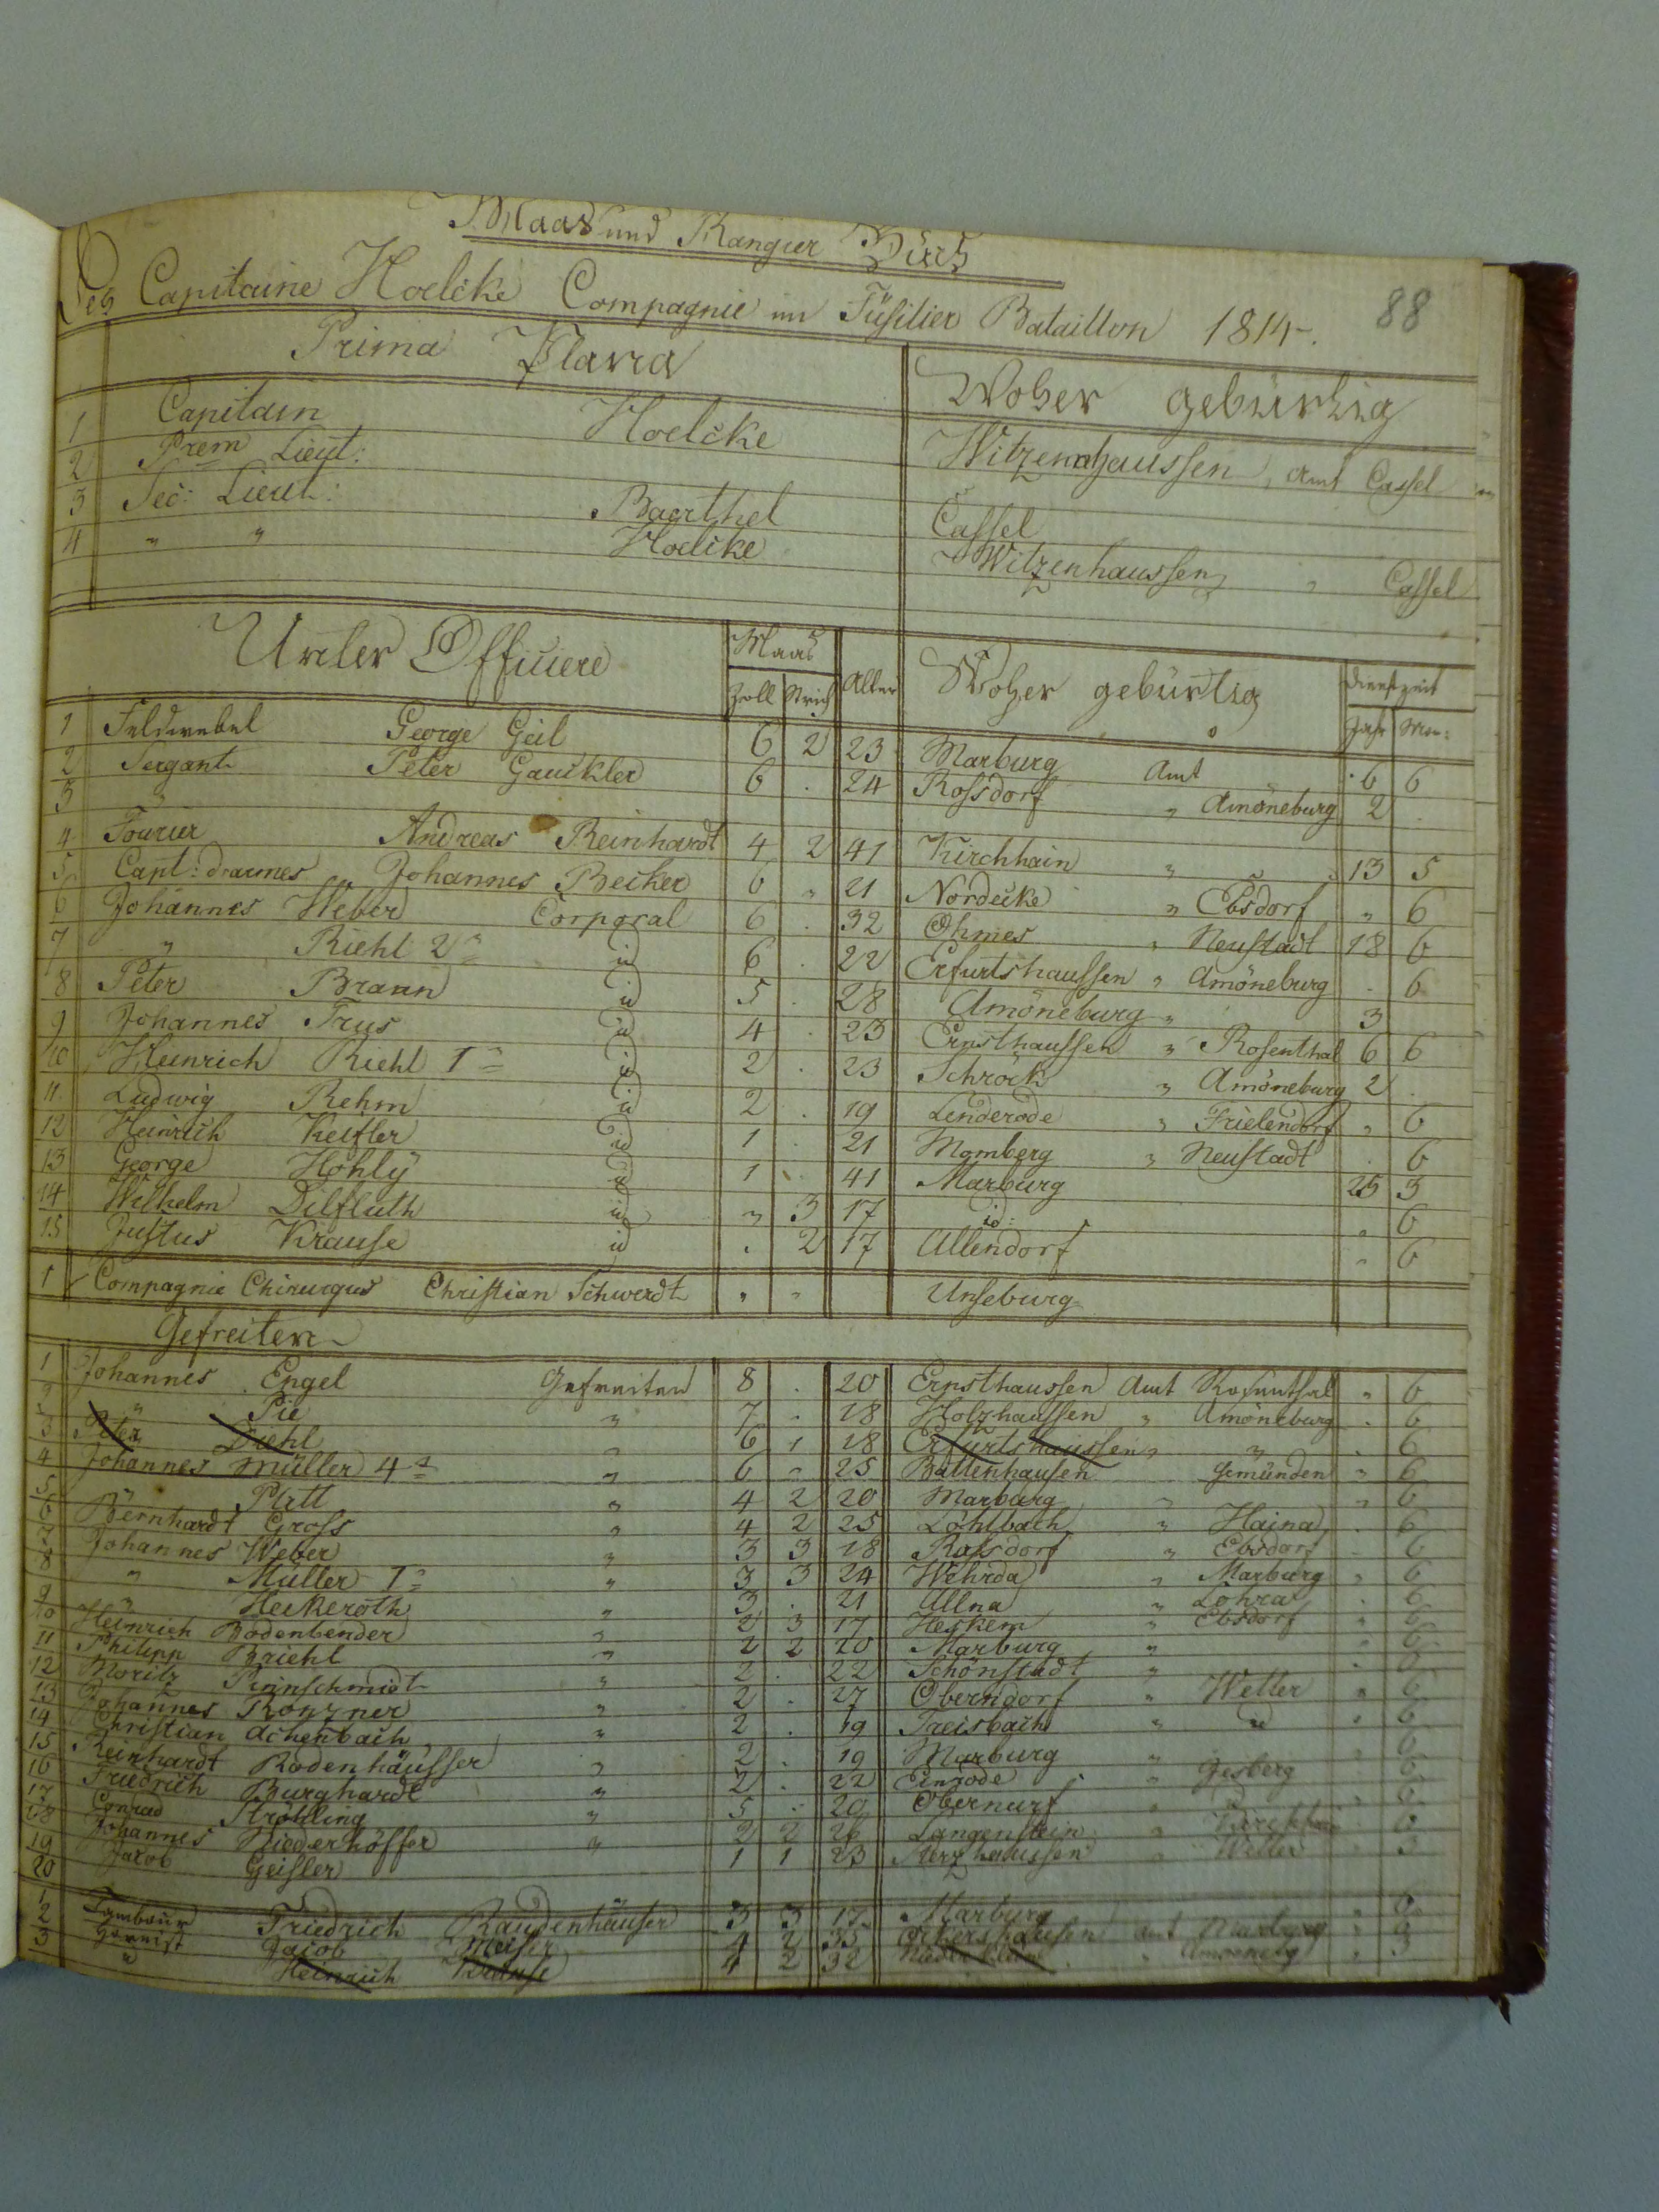 Maas und Rangier Buch
Des Capitaine Hoelcke Compagnie im Füsilier Bataillon 1814. 88
Prima Plana Woher gebürtig
1 Capitain Hoelcke Witzenhaussen, Amt Cassel
2 Prem Lieut:
3 Sec: Lieut: Baerthel Cassel
4 " " Hoelcke Witzenhaussen " Cassel
Unter Officiere Maas Alter Woher gebürtig Dienstzeit
Zoll Strich Jahr Mon:
1 Feldwebel George Geil 6 2 23 Marburg Amt 6 6
2 Sergant Peter Gauckler 6 . 24 Rossdorf " Amöneburg 2 .
3 "
4 Fourier Andreas Reinhardt 4 2 41 Kirchhain " " 13 5
5 Capt: d'armes Johannes Becker 6 " 21 Nordecke " Ebsdorf " 6
6 Johannes Weber Corporal 6 . 32 Ohmes " Neustadt 18 6
7 " Riehl 2r id 6 . 22 Erfurtshaussen " Amöneburg . 6
8 Peter Braun id 5 . 28 Amöneburg " 3
9 Johannes Trus id 4 . 23 Ernsthaussen " Rosenthal 6 6
10 Heinrich Riehl 1r id 2 . 23 Schröck " Amöneburg 2 .
11 Ludwig Rehm id 2 . 19 Lenderode " Frielendorf " 6
12 Heinrich Keisler id 1 . 21 Momberg " Neustadt . 6
13 George Hohly id 1 . 41 Marburg 25 3
14 Wilhelm Dilfluth id " 3 17 id: " 6
15 Justus Krause id . 2 17 Allendorf " 6
1 Compagnie Chirurgus Christian Schwerdt " " Unseburg
Gefreiten
1 Johannes Engel Gefreiten 8 . 20 Ernsthaussen Amt Rosenthal " 6
2 " Pie " 7 . 18 Holzhaussen " Amöneburg . 6
3 Peter Diehl " 6 1 18 Erfurtshaussen " " . 6
4 Johannes Müller 4r " 6 " 25 Battenhausen Gemünden " 6
5 " Platt " 4 2 20 Marburg " " 6
6 Bernhardt Gross " 4 2 25 Löhlbach " Haina . 6
7 Johannes Weber " 3 3 18 Rossdorf " Ebsdorf . 6
8 " Müller 1r " 3 3 24 Wehrda " Marburg " 6
9 " Heckeroth " 3 . 21 Allna " Lohra . 6
10 Heinrich Bodenbender " 2 3 17 Heskem " Ebsdorf " 6
11 Philipp Briehl " 2 2 20 Marburg " " 6
12 Moritz Pinnschmidt " 2 . 22 Schönstadt " . 6
13 Johannes Ronzner " 2 . 27 Oberndorf " Wetter " 6
14 Christian Achenbach " 2 . 19 Treisbach " id " 6
15 Reinhardt Rodenhäusser " 2 . 19 Marburg " 6
16 Friedrich Burghardt " 2 . 22 Einrode " Jesberg 6
17 Conrad Ströhling " 5 . 20 Obernurf " 6
18 Johannes Niederhöffer " 2 2 26 Langenstein " 6
19 Jacob Geisler 1 1 23 Sterzhaussen " Wetter 3
20
1 Tambour Friedrich Raudenhäuser 3 3 17 Marburg 6
2 Hornist Jacob Meiser 4 2 35 Ockershausen Amt Marburg
3 " Heinrich 4 2 32 " Amöneburg " 3